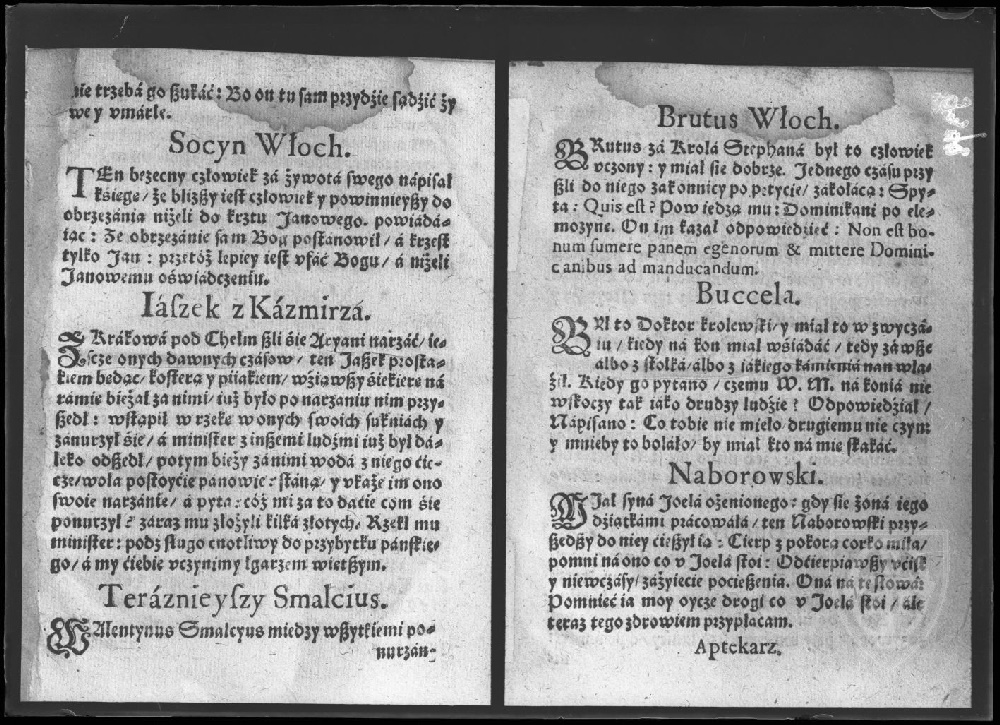 nie trzebá go ßukáć: Bo on tu sam przydźie sądźić ży
we y vmárłe.
Socyn Włoch.
TEn bezecny człowiek zá żywotá swego nápisał
księgę/ że bliżßy iest człowiek y powinnieyßy do
obrzezánia niżeli do krztu Janowego. powiádá-
iąc: Że obrzezánie sam Bog postánowił/ á krzest
tylko Jan: przetoż lepiey iest vfáć Bogu/ á niżeli
Janowemu oświádczeniu.
Iászek z Kázmirzá.
Z Krákowá pod Chełm ßli śie Aryani nurzáć/ ie-
szcze onych dawnych czásow/ ten Jaßek prosta-
kiem będąc/ kosterą y piiakiem/ wźiąwßy śiekierę ná
rámię bieżał zá nimi/ iuż było po nurzaniu nim przy-
ßedł: wstąpił w rzekę w onych swoich sukniách y
zánurzył śie/ á minister z inßemi ludźmi iuż był dá-
leko odßedł/ potym bieży zá nimi wodá z niego ćie-
cze/ woła postoycie panowie: staną/ y vkaże im ono
swoie nurzánie/ á pyta: coż mi zá to daćie com śie
ponurzył? záraz mu złożyli kilká złotych. Rzekł mu
minister: podź sługo cnotliwy do przybytku páńskie-
go/ á my ćiebie vczynimy łgarzem wietßym.
Teráznieyszy Smalcius.
WAlentynus Smalcyus miedzy wßytkiemi po-
nurzań-
Brutus Włoch.
BRutus zá Krolá Stephaná był to człowiek
vczony: y miał sie dobrze. Jednego czásu przy
ßli do niego zakonnicy po petycie/ zákołácą: Spy-
ta: Quis est? Powiedzą mu: Dominikani po ele-
mozynę. On im kazał odpowiedzieć: Non est bo-
num sumere panem egenorum & mittere Domini-
canibus ad manducandum.
Buccela.
BYł to Doktor krolewski/ y miał to w zwyczá-
iu/ kiedy ná koń miał wśiádáć/ tedy záwße
álbo z stołká/ álbo z iákiego kámieniá nań wła-
źił. Kiedy go pytano/ czemu W. M. ná koniá nie
wskoczy ták iáko drudzy ludźie? Odpowiedźiał/
Nápisano: Co tobie nie miło drugiemu nie czyń:
y mnieby to bolało/ by miał kto ná mię skakáć.
Naborowski.
MJał syná Joelá ożenionego: gdy sie żoná iego
dźiatkámi prácowáłá/ ten Naborowski przy-
ßedßy do niey ćießył ią: Cierp z pokorą corko miła/
pomni ná ono co v Joelá stoi: Odćierpiawßy vćisk
y niewczásy/ záżyiecie poćießenia. Oná ná to
Pomnieć ia moy oycze drogi co v Joelá stoi/ ále
teraz tego zdrowiem przypłacam.
Aptekarz.